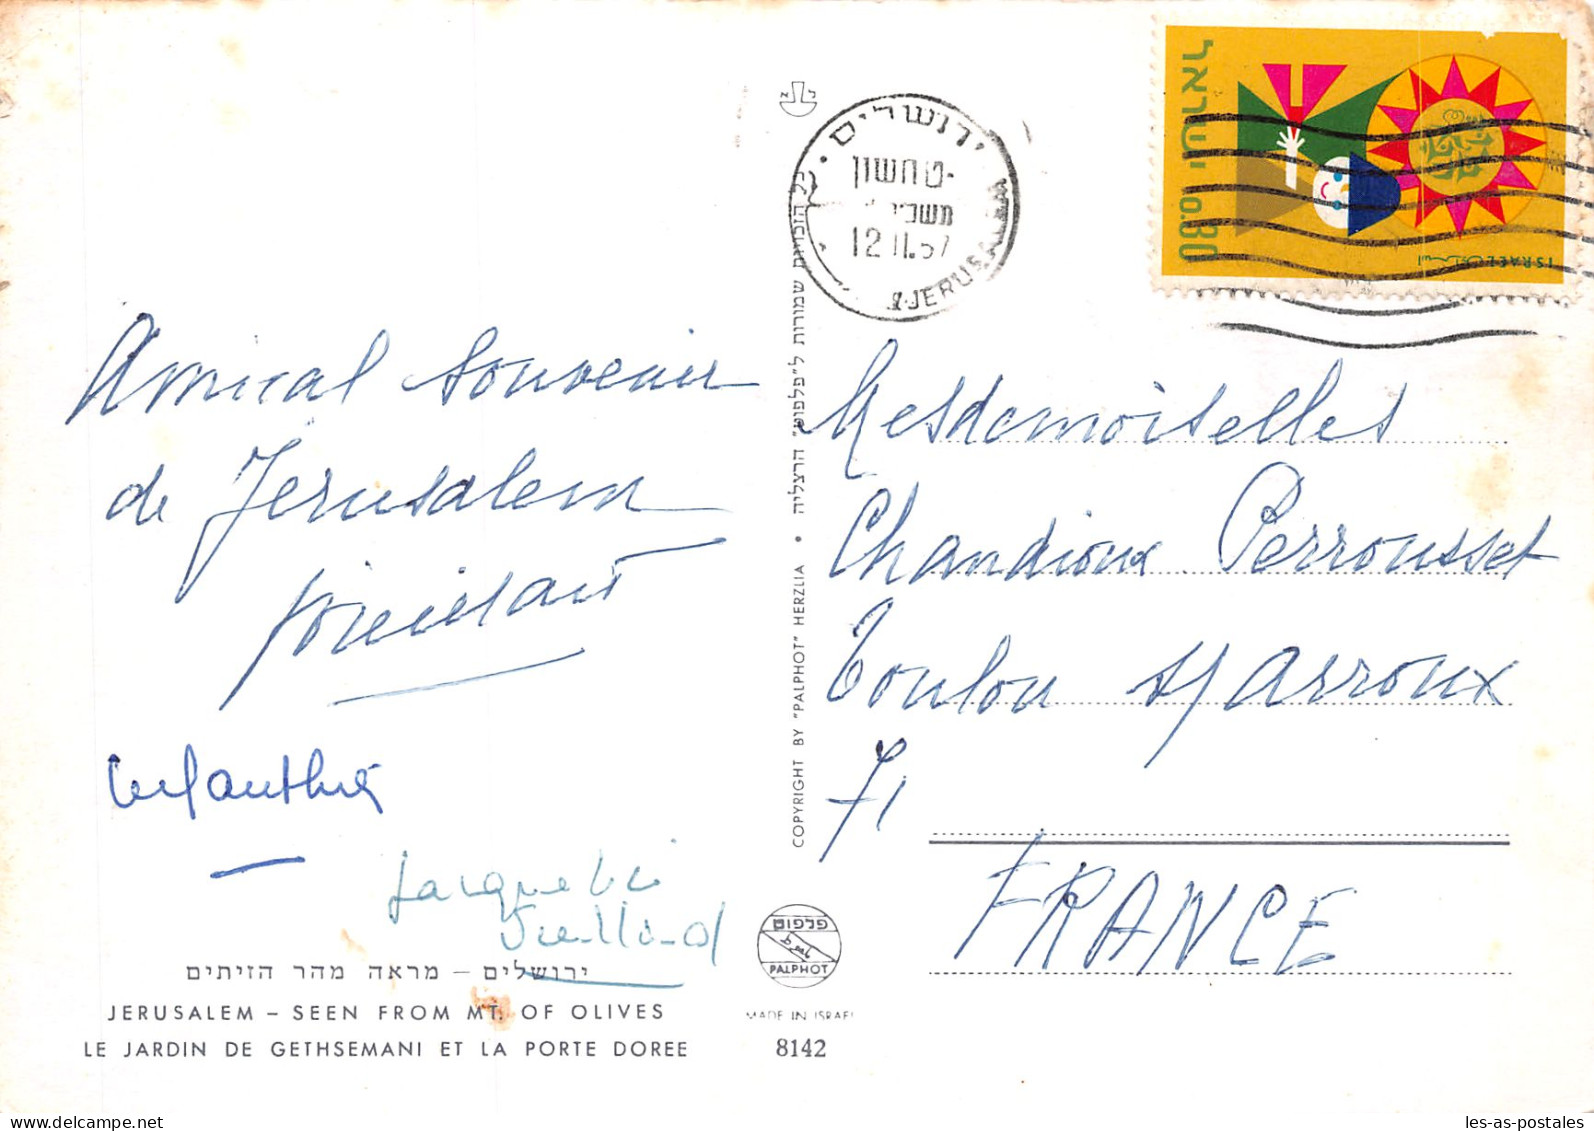 ישראל
0.80
ISRAEL
ירושלים
חשון
12.11.67
JERUSALEM
Amical souvenir
de Jerusalem
Jacqueline
ירושלים – מראה מהר הזיתים
JERUSALEM – SEEN FROM MT. OF OLIVES
LE JARDIN DE GETHSEMANI ET LA PORTE DOREE
כל הזכויות שמורות ל"פלפוט" הרצליה • COPYRIGHT BY "PALPHOT" HERZLIA
פלפוט
PALPHOT
MADE IN ISRAEL
8142
Mesdemoiselles
Chandioux Perrousset
Toulon s/ Arroux
71
FRANCE
les-as-postales